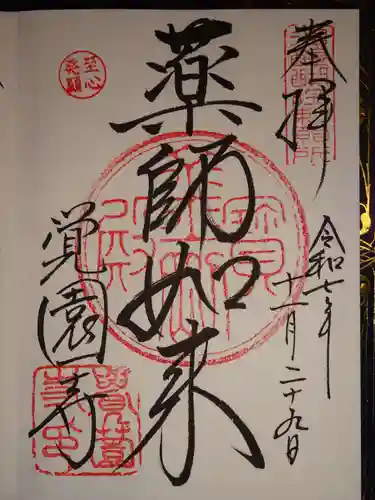 奉拝
令和七年
十一月二十九日
薬師如来
覚園寺